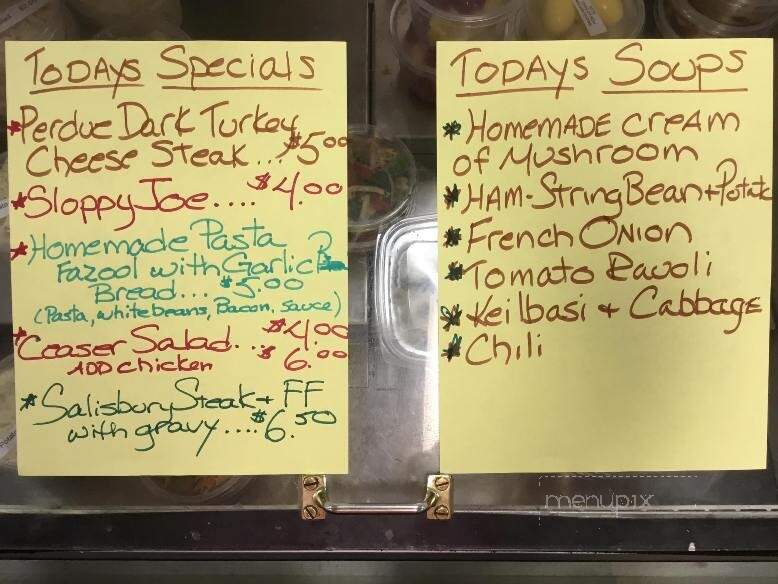 TODAYS Specials
*Perdue Dark Turkey
Cheese Steak... $5.00
*Sloppy Joe.... $4.00
*Homemade Pasta
Fazool with Garlic
Bread... $5.00
(Pasta, white beans, Bacon, sauce)
*Ceaser Salad.. $4.00
ADD chicken $6.00
*Salisbury Steak + FF
with gravy.... $6.50
TODAYS Soups
*HomemADE creAm
of Mushroom
*HAm-String Bean + Potato
*French Onion
*Tomato Ravoli
*Keilbasi + Cabbage
*Chili
menupix